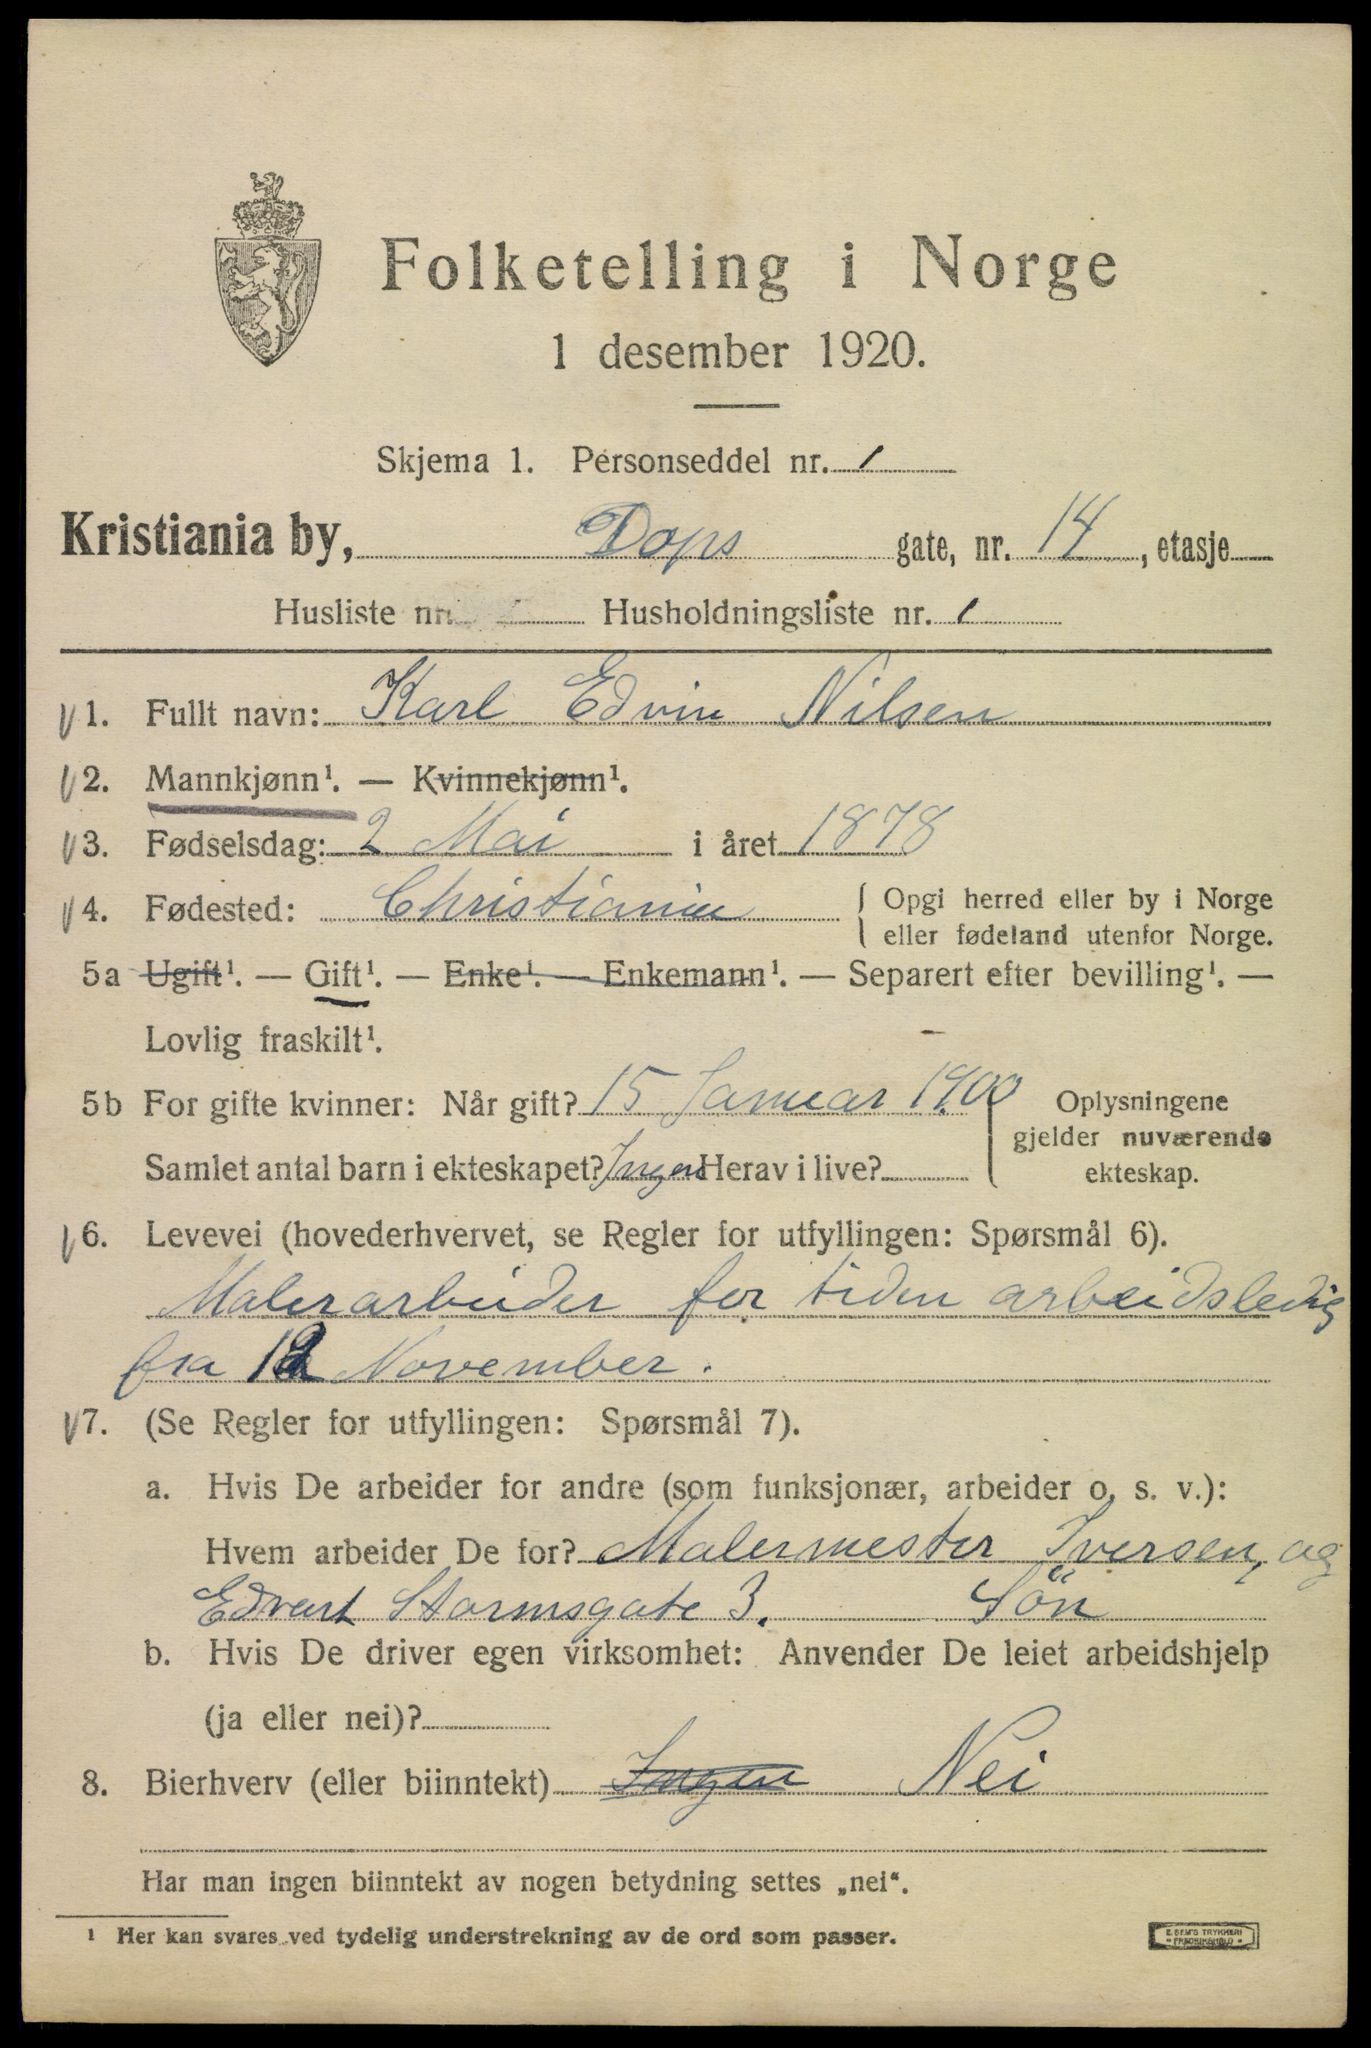 Folketelling i Norge
1 desember 1920.
Skjema 1. Personseddel nr. 1
Kristiania by, Dops gate, nr. 14, etasje
Husliste nr. Husholdningsliste nr. 1
1. Fullt navn: Karl Edvin Nilsen
2. Mannkjønn¹. — Kvinnekjønn¹.
3. Fødselsdag: 2 Mai i året 1878
4. Fødested: Christiania { Opgi herred eller by i Norge
eller fødeland utenfor Norge.
5a Ugift¹. — Gift¹. — Enke¹. — Enkemann¹. — Separert efter bevilling¹. —
Lovlig fraskilt¹.
5b For gifte kvinner: Når gift? 15 Januar 1900 Oplysningene
gjelder nuværende
Samlet antal barn i ekteskapet? Ingen Herav i live?
ekteskap.
6. Levevei (hovederhvervet, se Regler for utfyllingen: Spørsmål 6).
Malerarbeider for tiden arbeidsledig
fra 12 November.
7. (Se Regler for utfyllingen: Spørsmål 7).
a. Hvis De arbeider for andre (som funksjonær, arbeider o. s. v.):
Hvem arbeider De for? Malermester Iversen, og
Edvart Stormsgate 3. Sön
b. Hvis De driver egen virksomhet: Anvender De leiet arbeidshjelp
(ja eller nei)?
8. Bierhverv (eller biinntekt) Ingen Nei
Har man ingen biinntekt av nogen betydning settes „nei“.
¹ Her kan svares ved tydelig understrekning av de ord som passer.
E. SEM'S TRYKKERI
FREDRIKSHALD